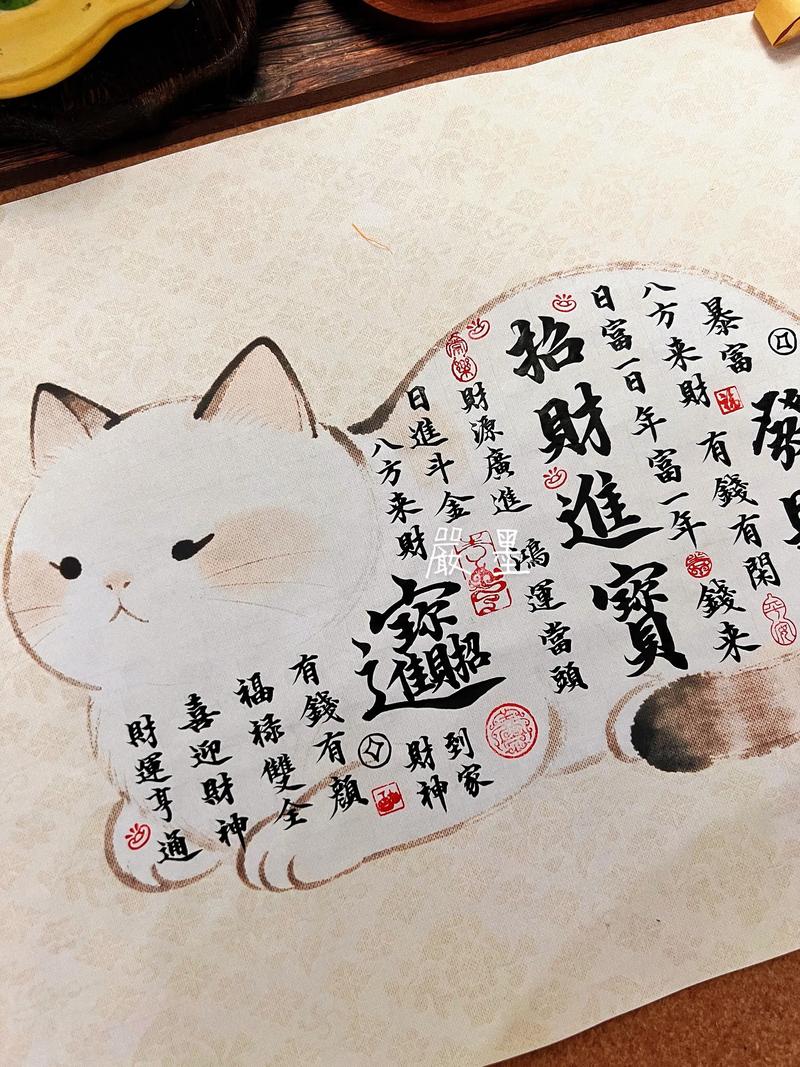 發
暴富
有錢有閑
平安
八方来財
錢来
日富一日年富一年
招財進寶
財源廣進
鴻運當頭
常樂
日進斗金
八方来財
招財進寶
財神到家
有錢有顏
福禄雙全
喜迎財神
財運亨通
嚴墨